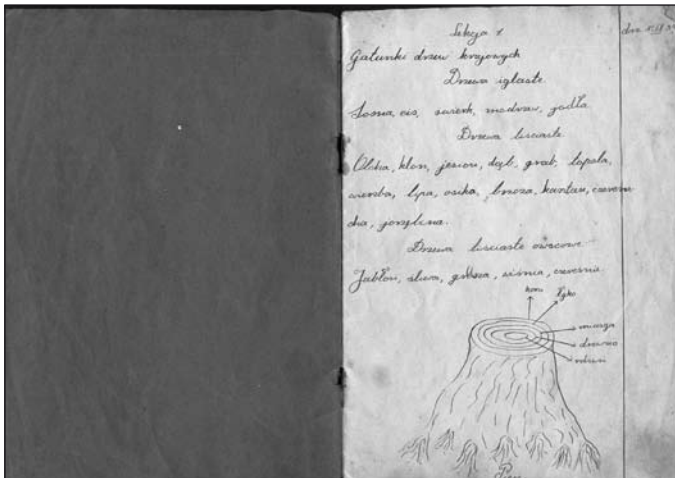 Lekcja 1
dn. 
Gatunki drzew krajowych
Drzewa iglaste
Sosna, cis, świerk, modrzew, jodła
Drzewa liściaste
Olcha, klon, jesion, dąb, grab, topola,
wierzba, lipa, osika, brzoza, kasztan, czerem
cha, jarzębina.
Drzewa liściaste owocowe
Jabłoń, śliwa, grusza, wiśnia, czereśnia
kora
łyko
miazga
drewno
rdzeń